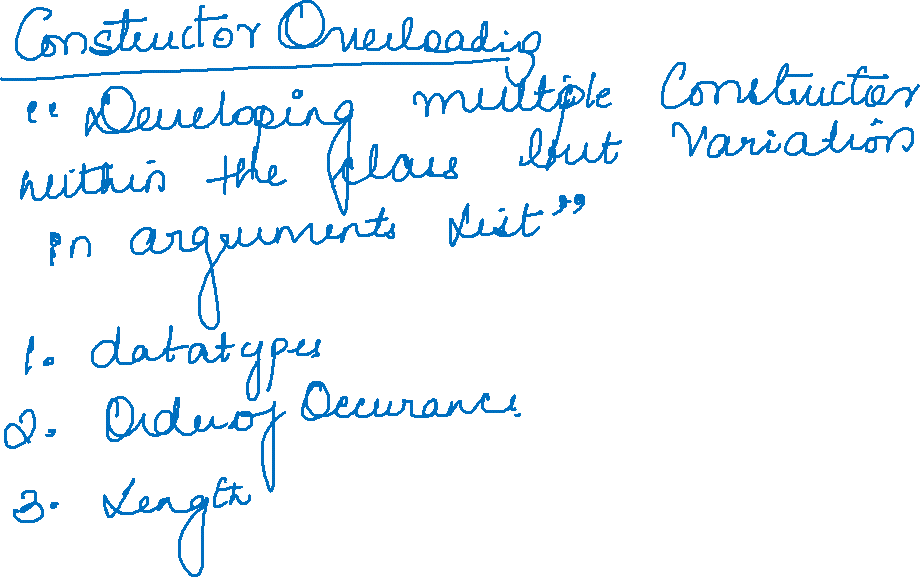 Constructor Overloadig
"Developing multiple Constructor
within the class but Variation
in arguments list"
1. datatypes
2. Order of Occurance
3. Length